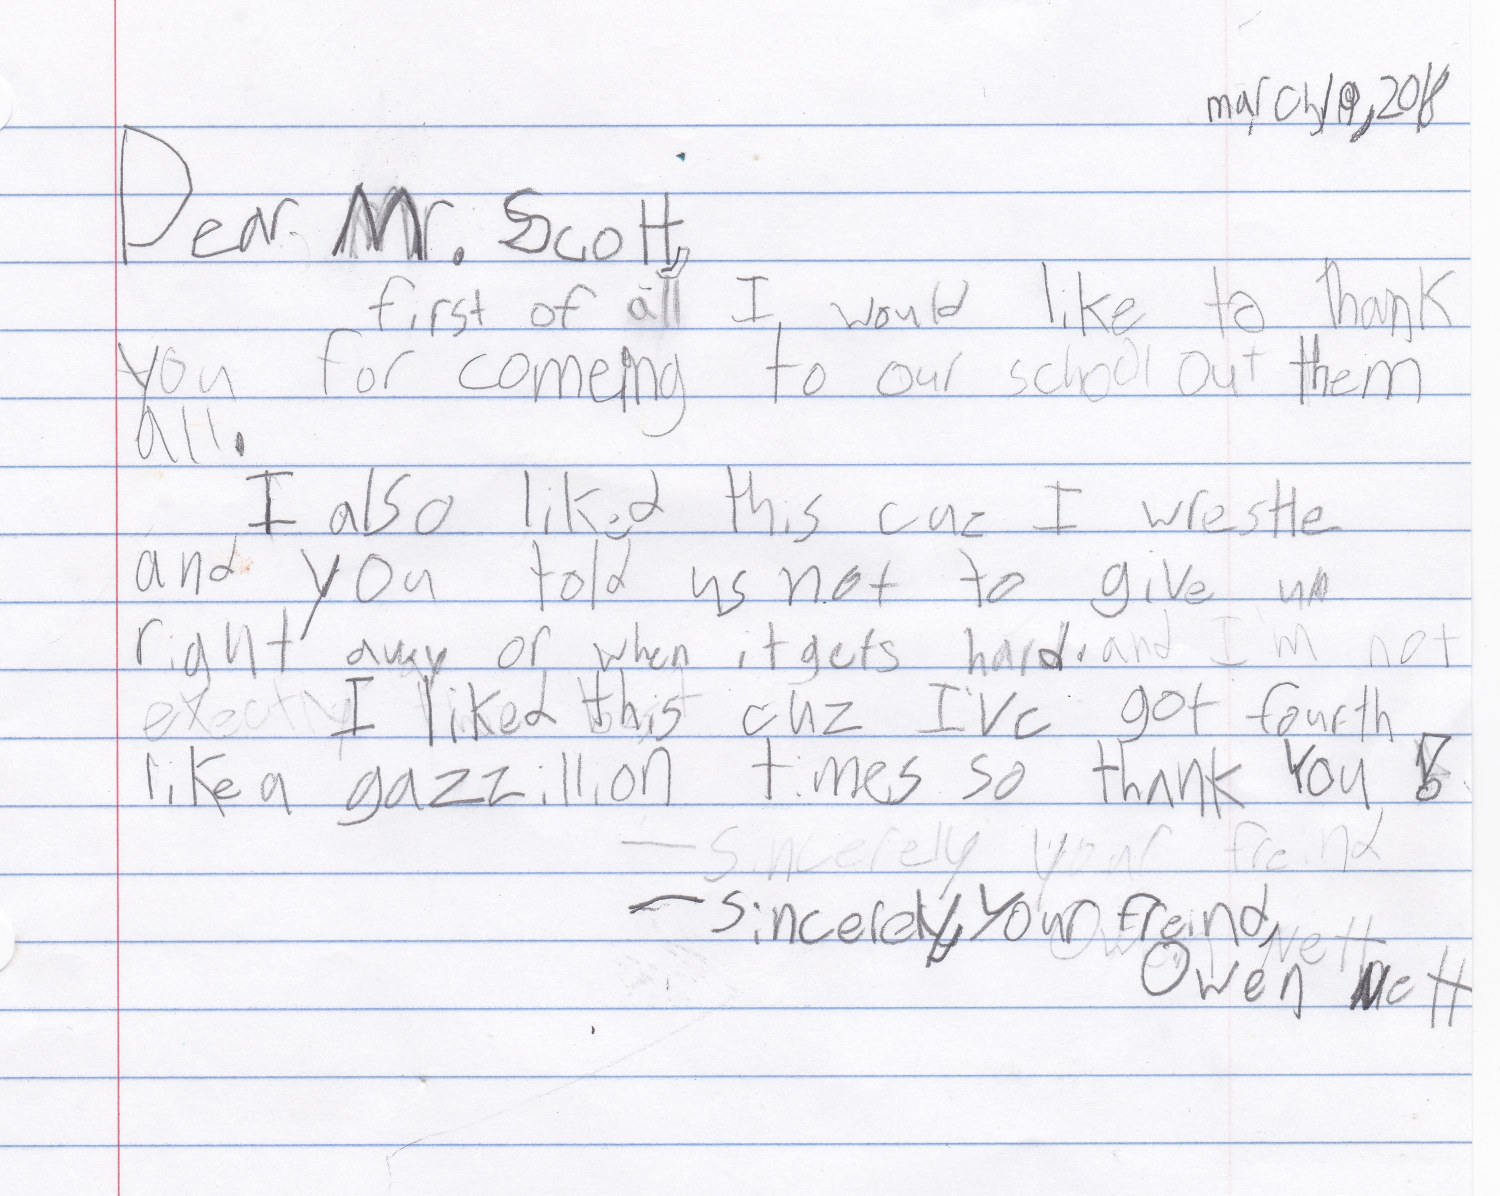 march 19, 2018
Dear Mr. Scott,
first of all I would like to thank
you for comeing to our school out them
all.
I also liked this cuz I wrestle
and you told us not to give up
right away or when it gets hard. and I'm not
exectly I liked this cuz I've got fourth
like a gazzillion times so thank you!
—Sincerely your freind
—Sincerely, your freind,
Owen Nett
Owen Nett